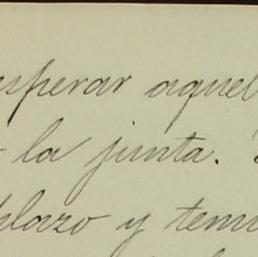 esperar aquel
la junta.
plazo y